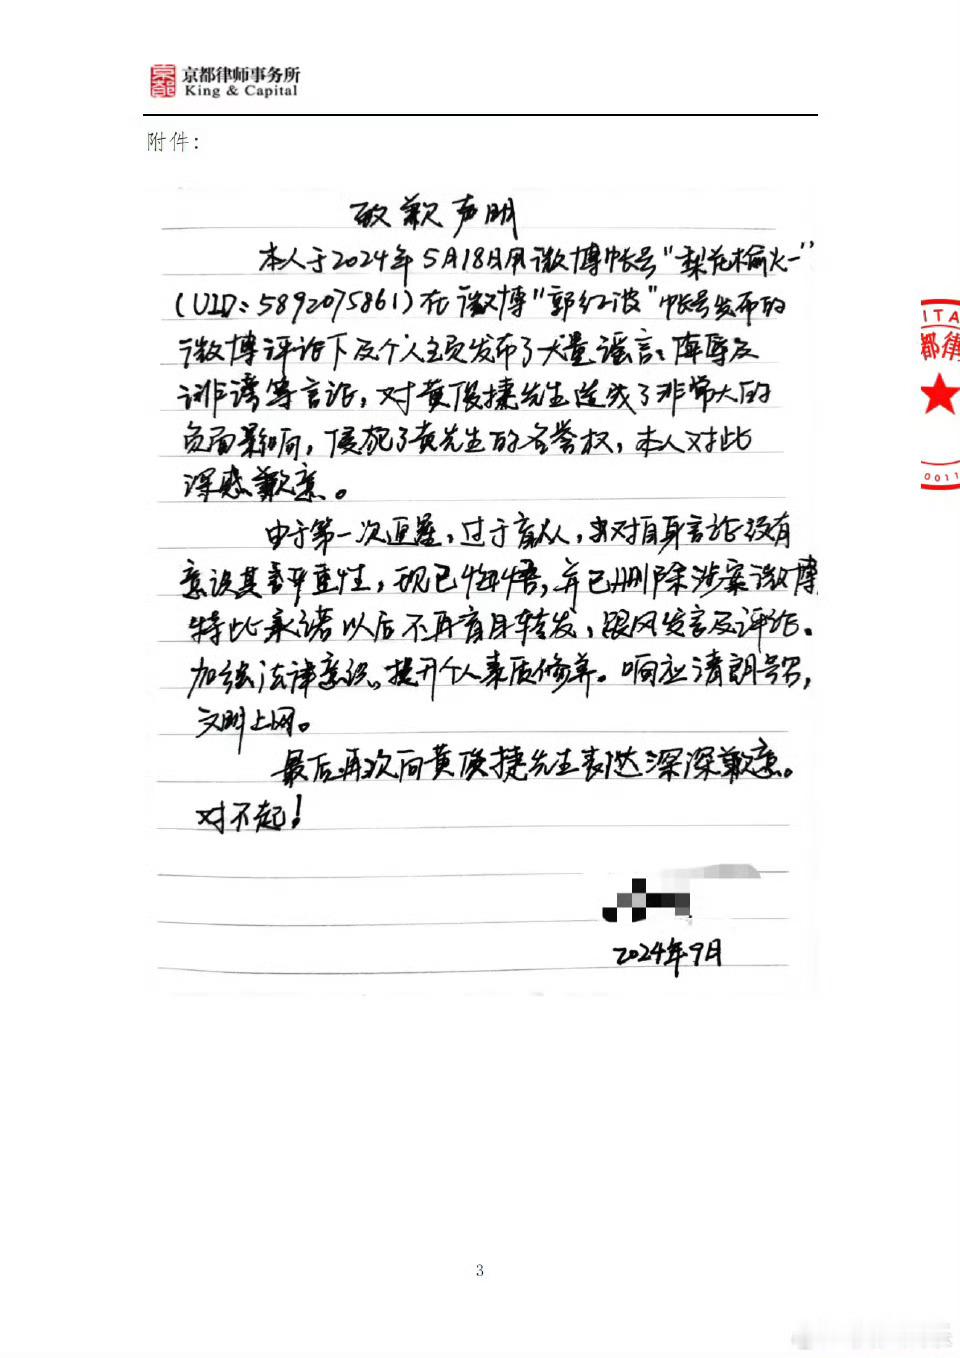 京都律师事务所
King & Capital
附件：
致歉声明
本人于2024年5月18日用微博帐号“梨花榆火一”
(UID：5892075861)在微博“郭红波”帐号发布的
微博评论下及个人主页发布了大量谣言、侮辱及
诽谤等言论，对黄俊捷先生造成了非常大的
负面影响，侵犯了黄先生的名誉权，本人对此
深感歉意。
由于第一次追星，过于盲从，对自身言论没有
意识其严重性，现已悔悟，并已删除涉案微博，
特此承诺以后不再盲目转发，跟风发言及评论。
加强法律意识。提升个人素质修养。响应清朗号召，
文明上网。
最后再次向黄俊捷先生表达深深歉意。
对不起！
2024年9月
ITA
都律
0011
3